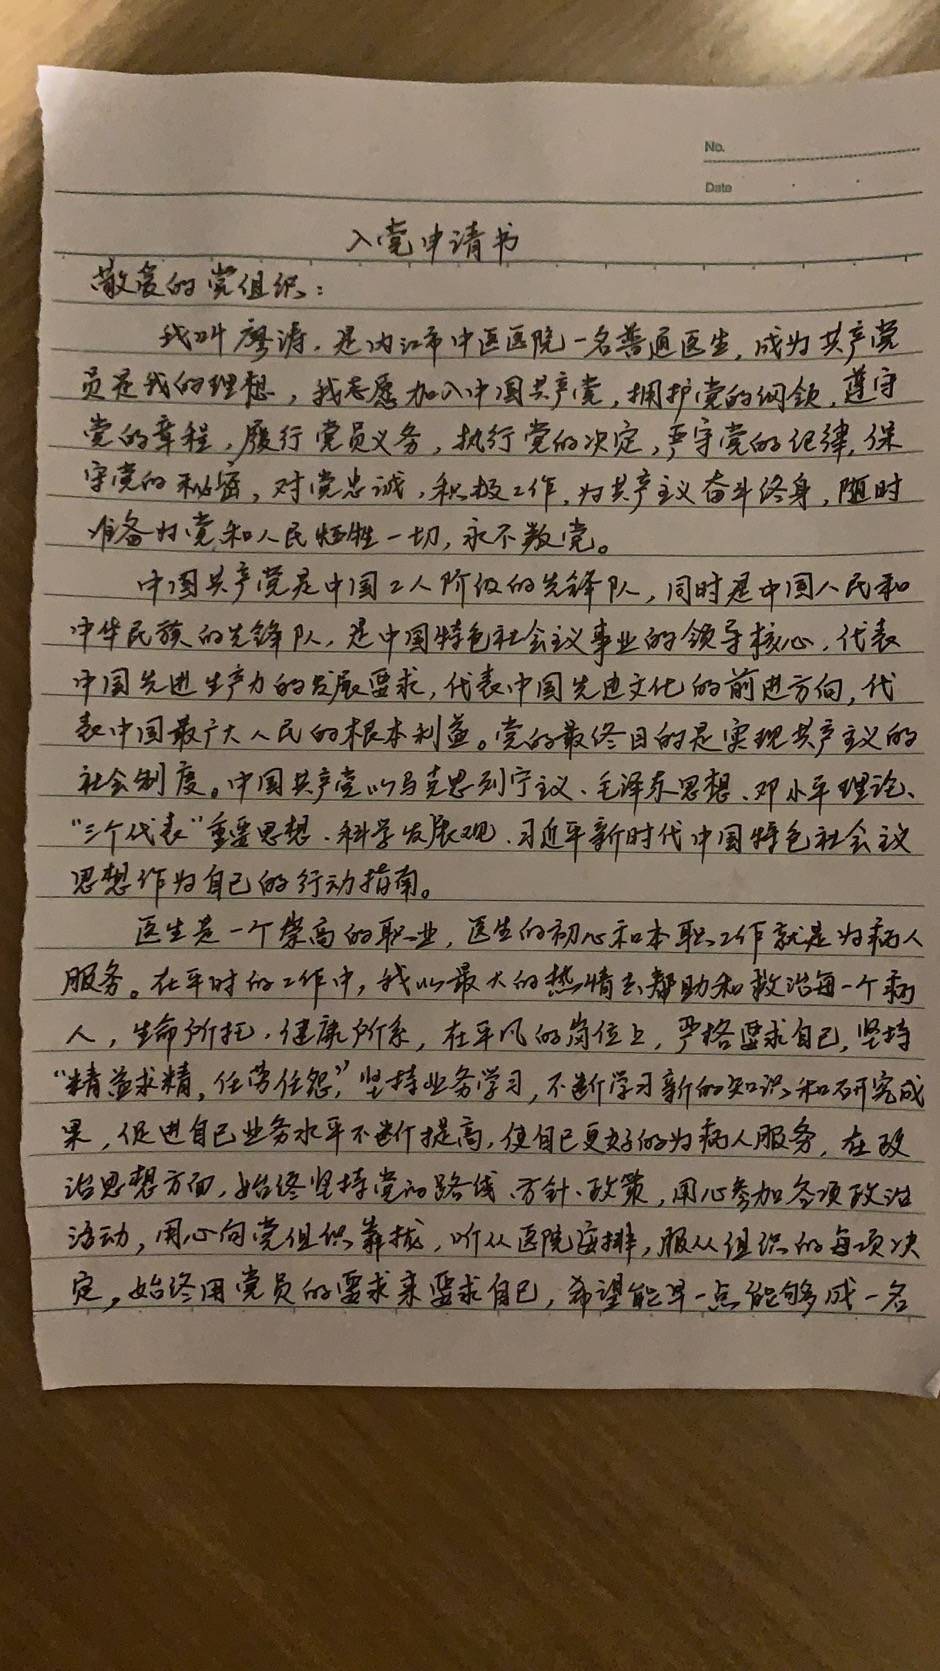 No.
Date
入党申请书
敬爱的党组织：
我叫廖涛，是内江市中医医院一名普通医生，成为共产党
员是我的理想，我志愿加入中国共产党，拥护党的纲领，遵守
党的章程，履行党员义务，执行党的决定，严守党的纪律，保
守党的秘密，对党忠诚，积极工作，为共产主义奋斗终身，随时
准备为党和人民牺牲一切，永不叛党。
中国共产党是中国工人阶级的先锋队，同时是中国人民和
中华民族的先锋队，是中国特色社会主义事业的领导核心，代表
中国先进生产力的发展要求，代表中国先进文化的前进方向，代
表中国最广大人民的根本利益。党的最终目的是实现共产主义的
社会制度。中国共产党以马克思列宁主义、毛泽东思想、邓小平理论、
“三个代表”重要思想、科学发展观、习近平新时代中国特色社会主义
思想作为自己的行动指南。
医生是一个崇高的职业，医生的初心和本职工作就是为病人
服务。在平时的工作中，我以最大的热情去帮助和救治每一个病
人，生命所托，健康所系，在平凡的岗位上，严格要求自己，坚持
“精益求精，任劳任怨，”坚持业务学习，不断学习新的知识和研究成
果，促进自己业务水平不断提高，使自己更好的为病人服务，在政
治思想方面，始终坚持党的路线、方针、政策，用心参加各项政治
活动，用心向党组织靠拢，听从医院安排，服从组织的每项决
定，始终用党员的要求来要求自己，希望能早一点能够成一名